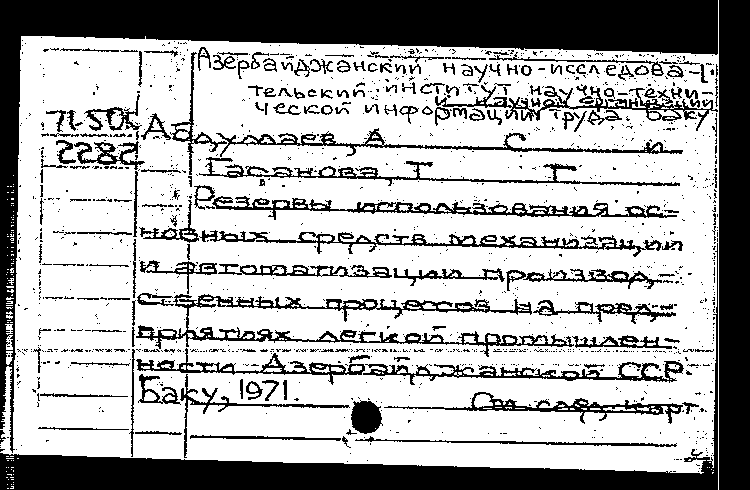 Азербайджанский научно-исследова-
тельский институт научно-техни-
ческой информации
и научной организации
труда. Баку
71-506
2282
Абдуллаев, А С и
Гасанова, Т Г
Резервы использования ос-
новных средств механизации
и автоматизации производ-
ственных процессов на пред-
приятиях легкой промышлен-
ности Азербайджанской ССР.
Баку, 1971.
См след карт.